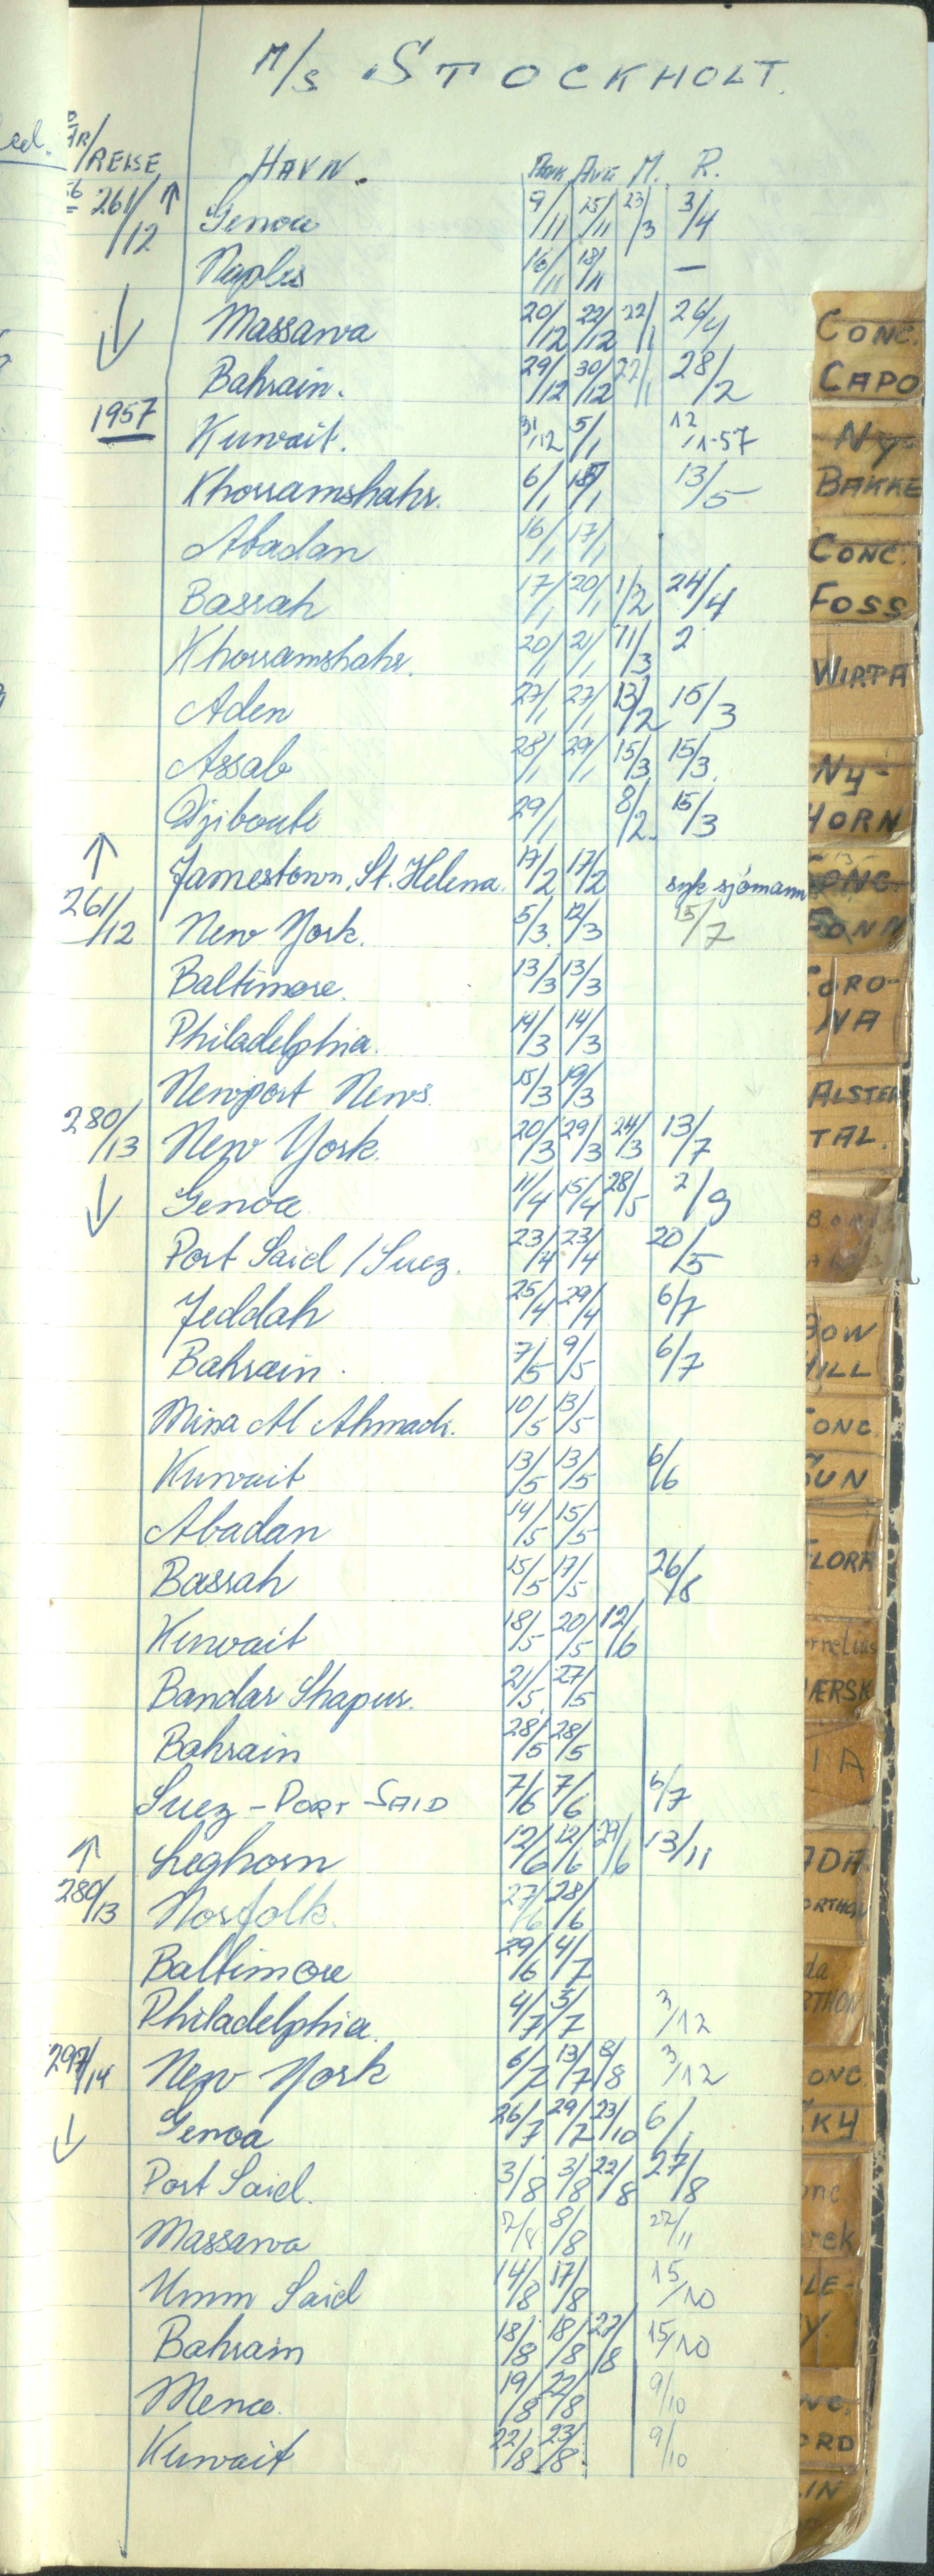 M/S STOCKHOLT.
ÅR/REISE HAVN. Ank Avg M. R.
56 261/12 ↑ Genoa 9/11 15/11 23/3 3/4
Naples 16/11 18/11 —
↓ Massawa 20/12 22/12 22/1 26/4
Bahrain. 29/12 30/12 22/1 28/2
1957 Kuwait. 31/12 5/1 12/1-57
Khorramshahr. 6/1 13/5
Abadan 16/1 17/1
Basrah 17/1 20/1 1/2 24/4
Khorramshahr. 20/1 21/1 11/3 2
Aden 27/1 27/1 13/2 15/3
Assab 28/1 29/1 15/3 15/3.
Djibouti 29/1 8/2. 15/3
↑ Jamestown, St. Helena. 17/2 17/2 syk sjömann
261/12 New York. 5/3. 12/3 15/7
Baltimore. 13/3 13/3
Philadelphia. 14/3 14/3
Newport News. 15/3 19/3
280/13 New York. 20/3 29/3 24/3 13/7
↓ Genoa 11/4 15/4 28/5 2/9
Port Said / Suez. 23/4 23/4 20/5
Jeddah 25/4 29/4 6/7
Bahrain. 7/5 9/5 6/7
Mina Al Ahmadi. 10/5 13/5
Kuwait 13/5 13/5 6/6
Abadan 14/5 15/5
Basrah 15/5 17/5 26/8
Kuwait 18/5 20/5 12/6
Bandar Shapur. 21/5 27/5
Bahrain 28/5 28/5
Suez - PORT SAID 7/6 7/6 6/7
↑ Leghorn 12/6 12/6 27/6 13/11
280/13 Norfolk. 27/6 28/6
Baltimore 29/6 4/7
Philadelphia. 4/7 5/7 3/12
297/14 New York 6/7 13/7 8/8 3/12
↓ Genoa 26/7 29/7 23/10 6/1
Port Said. 3/8 3/8 22/8 27/8
Massawa 7/8 8/8 27/11
Umm Said 14/8 17/8 15/10
Bahrain 18/8 18/8 27/8 15/10
Mena. 19/8 22/8 9/10
Kuwait 22/8 23/8. 9/10
CONC.
CAPO
NY-
BAKKE
CONC.
FOSS
WIRTA
NY-
HORN
CONC.
FONN
CORO-
NA
ALSTER
TAL.
BOW
HILL
CONC.
SUN
FLORA
Cornelius
MÆRSK
IA
ADA
ORTHON
da
RTHON
ONC.
SKY
onc
rek
LE-
Y.
NC.
ORD
IN